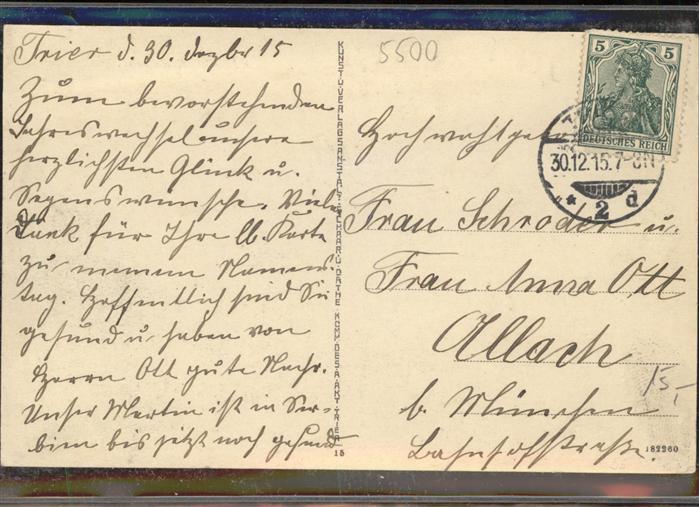 Trier d. 30. Dezbr 15
Zum bevorstehenden
Jahreswechsel unsere
herzlichsten Glück u.
Segenswünsche. Viele
Dank für Ihre lb. Karte
zu meinem Namens-
tag. Hoffentlich sind Sie
gesund u. haben von
Herrn Ott gute Nachr.
Unser Martin ist in Ser-
bien bis jetzt noch gesund
KUNST- U. VERLAGSANSTALT SCHAAR U. DATHE KOM.-GES. A. AKT. TRIER
15
5500
5 5
DEUTSCHES REICH
30.12.15.7-8N
* 2 d
Hochwohlgeb
Frau Schröder u.
Frau Anna Ott
Allach
b. München
Bahnhofstraße.
15,-
182260